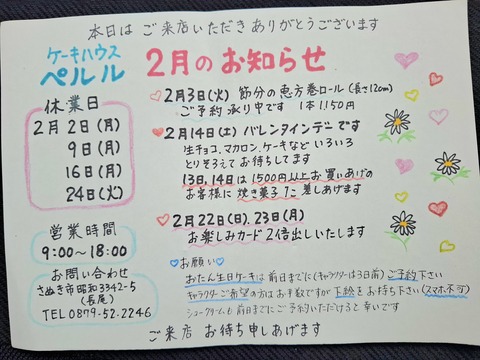 本日は ご来店いただき ありがとうございます
ケーキハウス
ペルル
2月のお知らせ
休業日
2月2日(月)
9日(月)
16日(月)
24日(火)
営業時間
9:00~18:00
お問い合わせ
さぬき市昭和3342-5
(長尾)
TEL 0879-52-2246
2月3日(火) 節分の恵方巻ロール(長さ12cm)
ご予約 承り中です 1本1150円
2月14日(土) バレンタインデーです
生チョコ、マカロン、ケーキなど いろいろ
とりそろえて お待ちしてます
13日、14日は 1500円以上お買いあげの
お客様に 焼き菓子1コ 差しあげます
2月22日(日)、23日(月)
お楽しみカード 2倍出しいたします
お願い
おたん生日ケーキは 前日までに(キャラクターは3日前) ご予約下さい
キャラクターご希望の方は お手数ですが 下絵をお持ち下さい(スマホ不可)
シュークリームも 前日までに ご予約いただけると 幸いです
ご来店 お待ち申しあげます